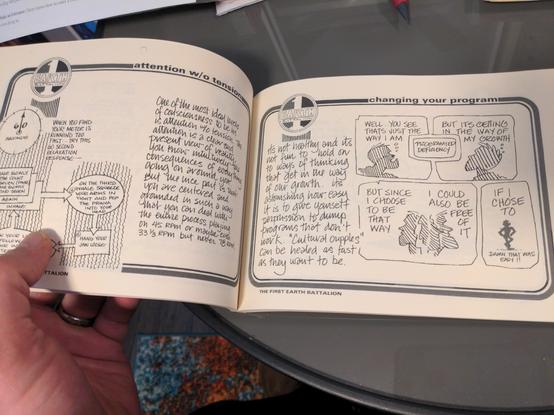 attention w/o tension
EARTH
WHEN YOU FIND
YOUR MOTOR IS
RUNNING TOO
FAST... TRY THIS
60 SECOND
RELAXATION
RESPONSE
AGAIN
ON THE THIRD
SQUEEZE
YOUR ARMS IN
TIGHT AND POP
THE PRANA
INTO YOUR
HAND YOUR
One of the most ideal levels
of consciousness to be in
is attention w/o tension.
attention is a clear and
present view of reality.
you know intuitively the
consequences of everything
going on around you.
But the nice part is that
you are centered and
grounded in such a way
that you can deal with
the entire process playing
on 45 RPM or maybe even
33⅓ RPM but never 78 RPM
BATTALION
changing your program
EARTH
Its not healthy and its
not fun to hold on
to ways of thinking
that get in the way
of our growth. its
astonishing how easy
it is to give yourself
permission to dump
programs that don't
work. "Cultural cripples"
can be healed as fast
as they want to be.
WELL YOU SEE
THATS JUST THE
WAY I AM
PROGRAMMED
DEFICIENCY
BUT ITS GETTING
IN THE WAY OF
MY GROWTH
BUT SINCE
I CHOOSE
TO BE
THAT
WAY
I COULD
ALSO BE
FREE
OF
IT
IF I
CHOSE
TO
DAMN THAT WAS
EASY!!
THE FIRST EARTH BATTALION